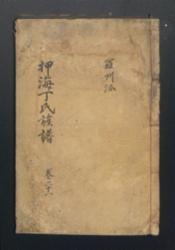 押海丁氏族譜
羅州派
卷之十八